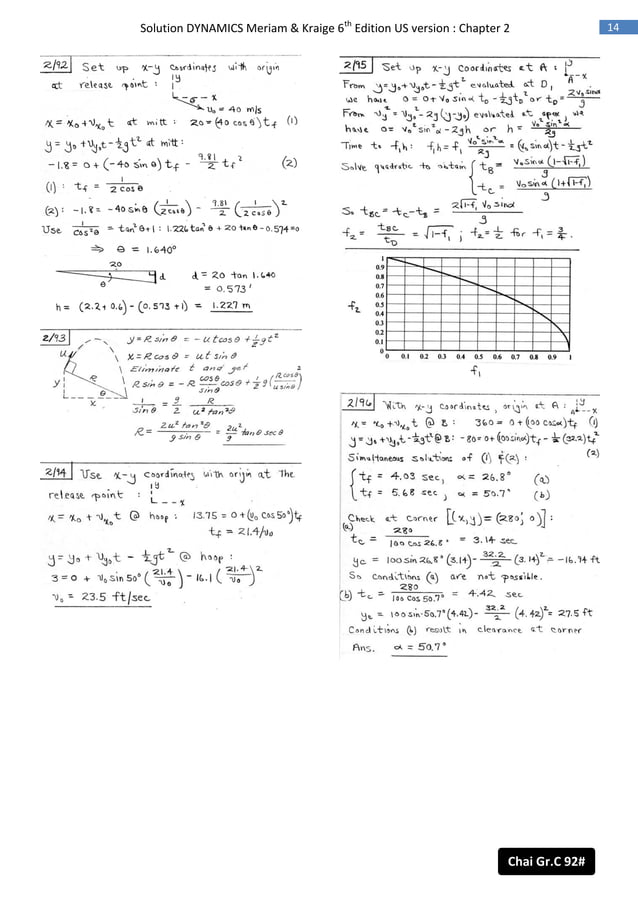 Solution DYNAMICS Meriam & Kraige 6th Edition US version : Chapter 2
14
2/92 Set up x-y coordinates with origin
at release point :
y
x
θ
v₀ = 40 m/s
x = x₀ + vₓ₀t at mitt : 20 = (40 cos θ) t_f (1)
y = y₀ + v_y₀t - ½gt² at mitt :
-1.8 = 0 + (-40 sin θ) t_f - 9.81/2 t_f² (2)
(1) : t_f = 1/(2 cos θ)
(2) : -1.8 = -40 sin θ (1/(2 cos θ)) - 9.81/2 (1/(2 cos θ))²
Use 1/cos²θ = tan²θ+1 : 1.226 tan²θ + 20 tan θ - 0.574 = 0
⇒ θ = 1.640°
20
d
d = 20 tan 1.640
= 0.573'
h = (2.2 + 0.6) - (0.573 + 1) = 1.227 m
2/93
y = R sin θ = -ut cos θ + ½gt²
x = R cos θ = ut sin θ
Eliminate t and get
R sin θ = -R cos θ/sin θ cos θ + ½g (R cos θ/u sin θ)²
u
R
y
θ
x
1/sin θ = g/2 R/(u² tan²θ)
R = 2u² tan²θ/(g sin θ) = 2u²/g tan θ sec θ
2/94 Use x-y coordinates with origin at the
release point :
y
x
x = x₀ + vₓ₀t @ hoop : 13.75 = 0 + (v₀ cos 50°) t_f
t_f = 21.4/v₀
y = y₀ + v_y₀t - ½gt² @ hoop :
3 = 0 + v₀ sin 50° (21.4/v₀) - 16.1 (21.4/v₀)²
v₀ = 23.5 ft/sec
2/95 Set up x-y coordinates at A :
y
A - x
From y = y₀ + v_y₀t - ½gt² evaluated at D,
we have 0 = 0 + v₀ sin α t_D - ½gt_D² or t_D = 2v₀ sin α/g
From v_y² = v_y₀² - 2g(y-y₀) evaluated at apex, we
have 0 = v₀² sin²α - 2gh or h = v₀² sin²α/2g
Time to f₁h : f₁h = f₁ v₀² sin²α/2g = (v₀ sin α)t - ½gt²
Solve quadratic to obtain { t_B = v₀ sin α (1-√1-f₁)/g
t_C = v₀ sin α (1+√1-f₁)/g
So t_BC = t_C - t_B = 2√1-f₁ v₀ sin α/g
f₂ = t_BC/t_D = √1-f₁ ; f₂ = ½ for f₁ = ¾.
1
0.9
0.8
0.7
0.6
0.5
0.4
0.3
0.2
0.1
0
f₂
0 0.1 0.2 0.3 0.4 0.5 0.6 0.7 0.8 0.9 1
f₁
2/96 With x-y coordinates, origin at A :
y
A
x
x = x₀ + vₓ₀t @ B : 360 = 0 + (100 cos α) t_f (1)
y = y₀ + v_y₀t - ½gt² @ B : -80 = 0 + (100 sin α) t_f - ½ (32.2) t_f²
(2)
Simultaneous solutions of (1) & (2) :
{ t_f = 4.03 sec, α = 26.8° (a)
t_f = 5.68 sec, α = 50.7° (b)
Check at corner [(x,y) = (280', 0)] :
(a) t_C = 280/(100 cos 26.8°) = 3.14 sec
y_C = 100 sin 26.8° (3.14) - 32.2/2 (3.14)² = -16.94 ft
So conditions (a) are not possible.
(b) t_C = 280/(100 cos 50.7°) = 4.42 sec
y_C = 100 sin 50.7° (4.42) - 32.2/2 (4.42)² = 27.5 ft
Conditions (b) result in clearance at corner
Ans. α = 50.7°
Chai Gr.C 92#